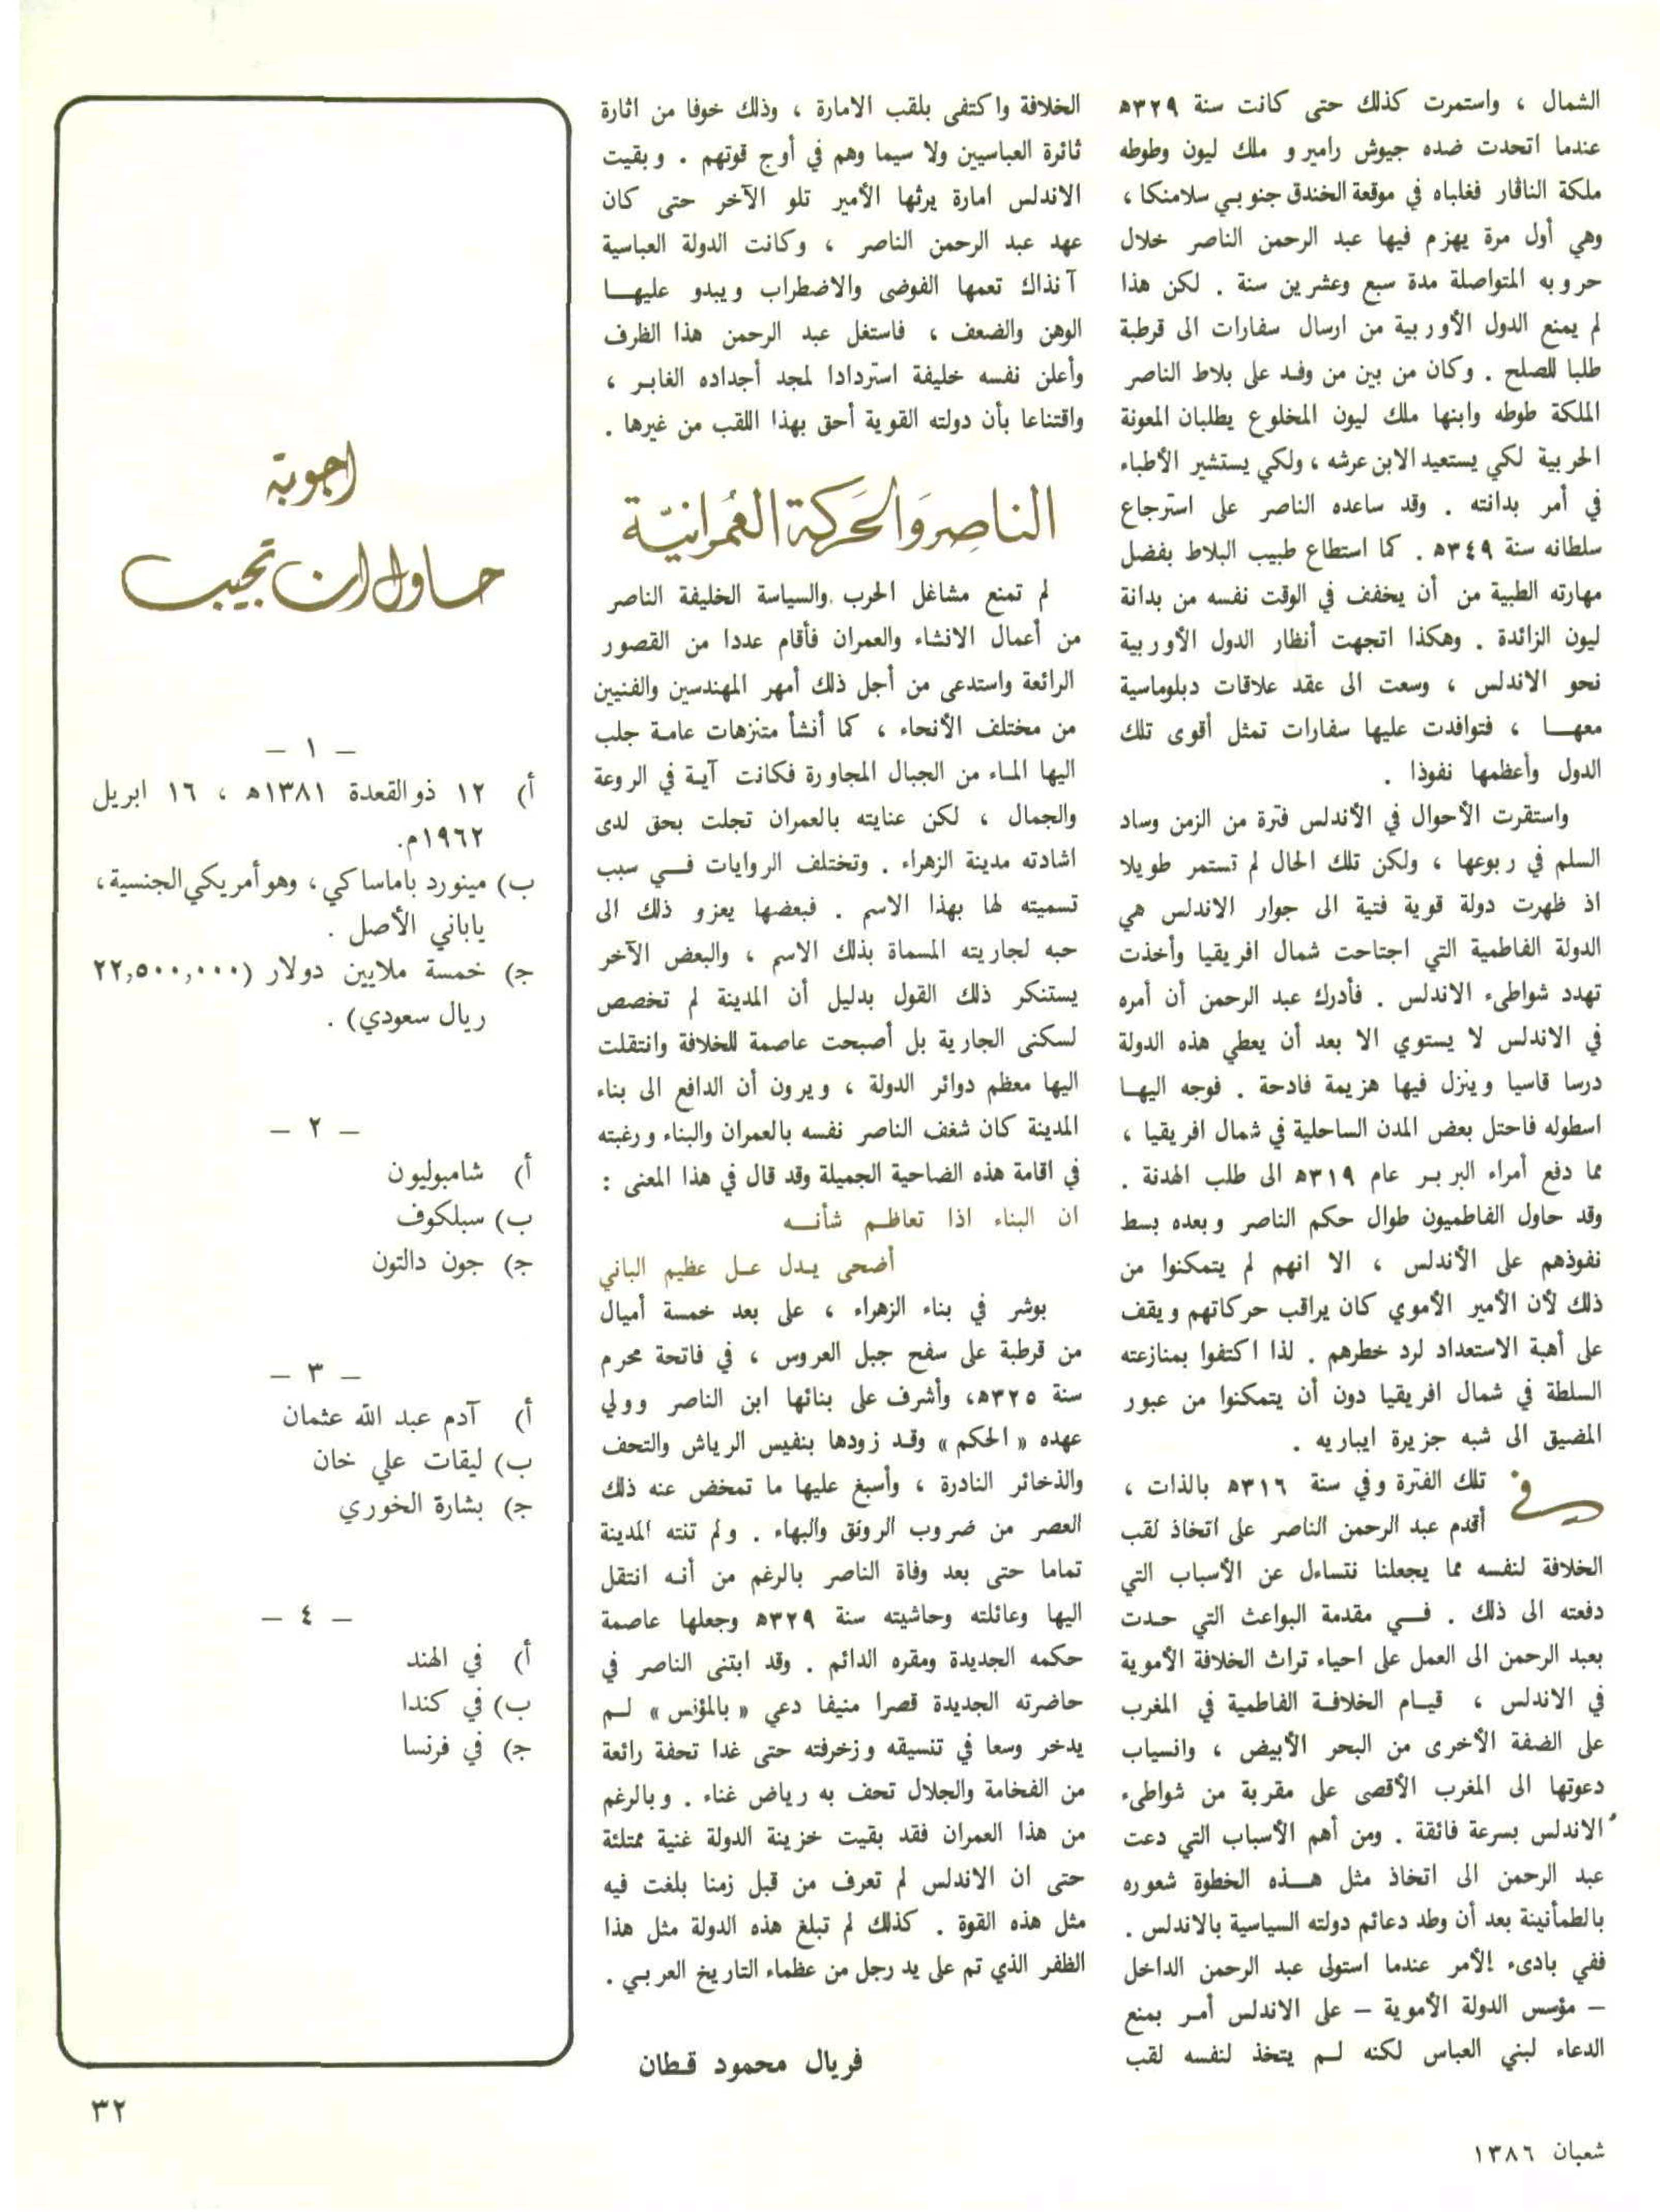 الشمال ، واستمرت كذلك حتى كانت سنة ٣٢٩ﻫ
عندما اتحدت ضده جيوش رامير و ملك ليون وطوطه
ملكة الناڤار فغلباه في موقعة الخندق جنوبي سلامنكا ،
وهي أول مرة يهزم فيها عبد الرحمن الناصر خلال
حروبه المتواصلة مدة سبع وعشرين سنة . لكن هذا
لم يمنع الدول الأوربية من ارسال سفارات الى قرطبة
طلبا للصلح . وكان من بين من وفد على بلاط الناصر
الملكة طوطه وابنها ملك ليون المخلوع يطلبان المعونة
الحربية لكي يستعيد الابن عرشه ، ولكي يستشير الأطباء
في أمر بدانته . وقد ساعده الناصر على استرجاع
سلطانه سنة ٣٤٩ﻫ . كما استطاع طبيب البلاط بفضل
مهارته الطبية من أن يخفف في الوقت نفسه من بدانة
ليون الزائدة . وهكذا اتجهت أنظار الدول الأوربية
نحو الاندلس ، وسعت الى عقد علاقات دبلوماسية
معهـــا ، فتوافدت عليها سفارات تمثل أقوى تلك
الدول وأعظمها نفوذا .
واستقرت الأحوال في الأندلس فترة من الزمن وساد
السلم في ربوعها ، ولكن تلك الحال لم تستمر طويلا
اذ ظهرت دولة قوية فتية الى جوار الاندلس هي
الدولة الفاطمية التي اجتاحت شمال افريقيا وأخذت
تهدد شواطىء الاندلس . فأدرك عبد الرحمن أن أمره
في الاندلس لا يستوي الا بعد أن يعطي هذه الدولة
درسا قاسيا وينزل فيها هزيمة فادحة . فوجه اليهـا
اسطوله فاحتل بعض المدن الساحلية في شمال افريقيا ،
مما دفع أمراء البربـر عام ٣١٩ﻫ الى طلب الهدنة .
وقد حاول الفاطميون طوال حكم الناصر وبعده بسط
نفوذهم على الأندلس ، الا انهم لم يتمكنوا من
ذلك لأن الأمير الأموي كان يراقب حركاتهم ويقف
على أهبة الاستعداد لرد خطرهم . لذا اكتفوا بمنازعته
السلطة في شمال افريقيا دون أن يتمكنوا من عبور
المضيق الى شبه جزيرة ايباريه .
في تلك الفترة وفي سنة ٣١٦ﻫ بالذات ،
أقدم عبد الرحمن الناصر على اتخاذ لقب
الخلافة لنفسه مما يجعلنا نتساءل عن الأسباب التي
دفعته الى ذلك . فـــي مقدمة البواعث التي حـدت
بعبد الرحمن الى العمل على احياء تراث الخلافة الأموية
في الاندلس ، قيـام الخلافـة الفاطمية في المغرب
على الضفة الأخرى من البحر الأبيض ، وانسياب
دعوتها الى المغرب الأقصى على مقربة من شواطىء
الاندلس بسرعة فائقة . ومن أهم الأسباب التي دعت
عبد الرحمن الى اتخاذ مثل هـــذه الخطوة شعوره
بالطمأنينة بعد أن وطد دعائم دولته السياسية بالاندلس .
ففي بادىء الأمر عندما استولى عبد الرحمن الداخل
– مؤسس الدولة الأموية – على الاندلس أمـر بمنع
الدعاء لبني العباس لكنه لــم يتخذ لنفسه لقب
الخلافة واكتفى بلقب الامارة ، وذلك خوفا من اثارة
ثائرة العباسيين ولا سيما وهم في أوج قوتهم . وبقيت
الاندلس امارة يرثها الأمير تلو الآخر حتى كان
عهد عبد الرحمن الناصر ، وكانت الدولة العباسية
آنذاك تعمها الفوضى والاضطراب ويبدو عليهــا
الوهن والضعف ، فاستغل عبد الرحمن هذا الظرف
وأعلن نفسه خليفة استردادا لمجد أجداده الغابـر ،
واقتناعا بأن دولته القوية أحق بهذا اللقب من غيرها .
الناصِر وَالحَركة العُمرانيّة
لم تمنع مشاغل الحرب والسياسة الخليفة الناصر
من أعمال الانشاء والعمران فأقام عددا من القصور
الرائعة واستدعى من أجل ذلك أمهر المهندسين والفنيين
من مختلف الأنحاء ، كما أنشأ متنزهات عامـة جلب
اليها المـاء من الجبال المجاورة فكانت آيـة في الروعة
والجمال ، لكن عنايته بالعمران تجلت بحق لدى
اشادته مدينة الزهراء . وتختلف الروايات فـــي سبب
تسميته لها بهذا الاسم . فبعضها يعزو ذلك الى
حبه لجاريته المسماة بذلك الاسم ، والبعض الآخر
يستنكر ذلك القول بدليل أن المدينة لم تخصص
لسكنى الجارية بل أصبحت عاصمة للخلافة وانتقلت
اليها معظم دوائر الدولة ، ويرون أن الدافع الى بناء
المدينة كان شغف الناصر نفسه بالعمران والبناء ورغبته
في اقامة هذه الضاحية الجميلة وقد قال في هذا المعنى :
ان البناء اذا تعاظـم شأنـــه
أضحى يـدل عـلى عظيم الباني
بوشر في بناء الزهراء ، على بعد خمسة أميال
من قرطبة على سفح جبل العروس ، في فاتحة محرم
سنة ٣٢٥ﻫ، وأشرف على بنائها ابن الناصر وولي
عهده « الحكم » وقـد زودها بنفيس الرياش والتحف
والذخائر النادرة ، وأسبغ عليها ما تمخض عنه ذلك
العصر من ضروب الرونق والبهاء . ولم تنته المدينة
تماما حتى بعد وفاة الناصر بالرغم من أنـه انتقل
اليها وعائلته وحاشيته سنة ٣٢٩ﻫ وجعلها عاصمة
حكمه الجديدة ومقره الدائم . وقد ابتنى الناصر في
حاضرته الجديدة قصرا منيفا دعي « بالمؤنس » لــم
يدخر وسعا في تنسيقه وزخرفته حتى غدا تحفة رائعة
من الفخامة والجلال تحف به رياض غناء . وبالرغم
من هذا العمران فقد بقيت خزينة الدولة غنية ممتلئة
حتى ان الاندلس لم تعرف من قبل زمنا بلغت فيه
مثل هذه القوة . كذلك لم تبلغ هذه الدولة مثل هذا
الظفر الذي تم على يد رجل من عظماء التاريخ العربـي .
فريال محمود قـطان
اجوبة
حـاول ان تجيب
– ١ –
أ) ١٢ ذو القعدة ١٣٨١ﻫ ، ١٦ ابريل
١٩٦٢م.
ب) مينورد ياماساكي ، وهو أمريكي الجنسية ،
ياباني الأصل .
ج) خمسة ملايين دولار (٢٢,٥٠٠,٠٠٠
ريال سعودي) .
– ٢ –
أ) شامبوليون
ب) سبلكوف
ج) جون دالتون
– ٣ –
أ) آدم عبد الله عثمان
ب) ليقات علي خان
ج) بشارة الخوري
– ٤ –
أ) في الهند
ب) في كندا
ج) في فرنسا
٣٢
شعبان ١٣٨٦